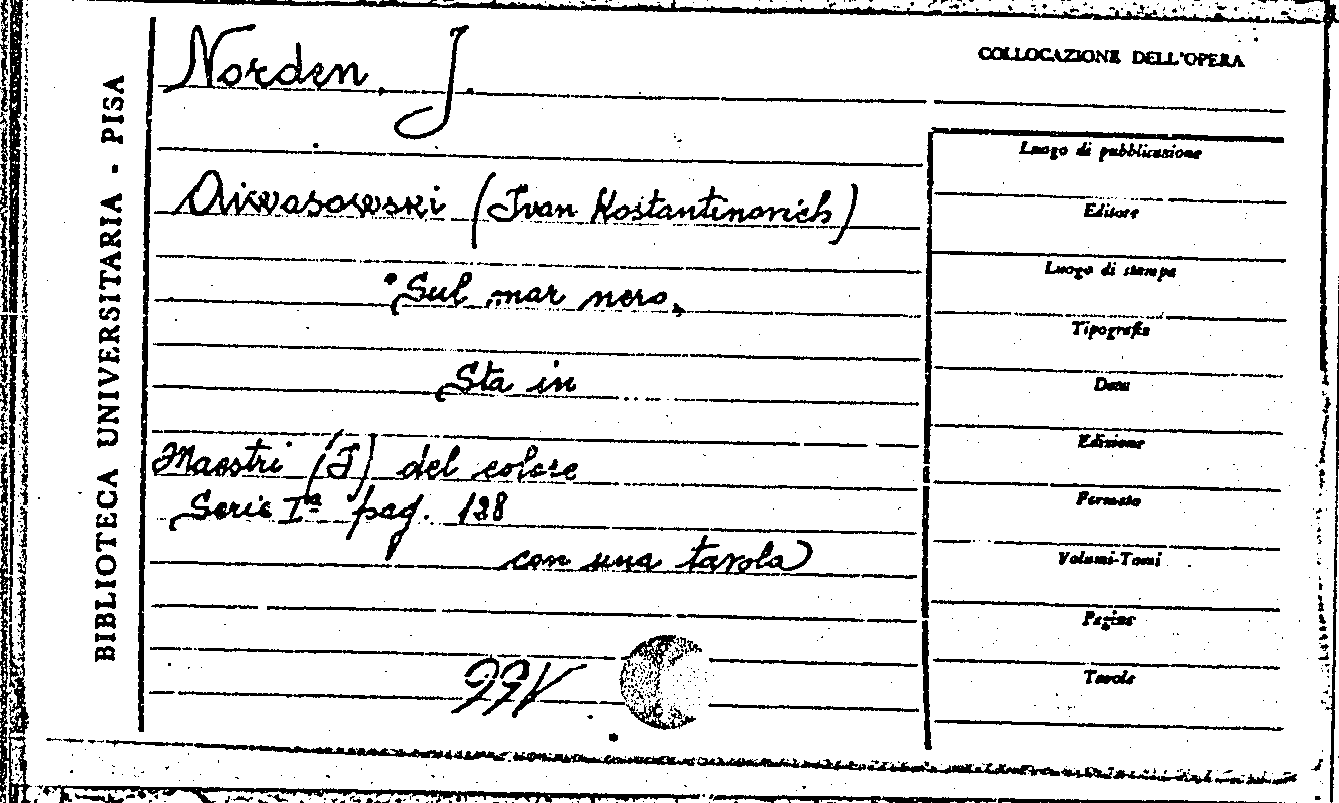 BIBLIOTECA UNIVERSITARIA - PISA
Norden, J.
Aiwasowski (Ivan Kostantinovich)
"Sul mar nero„
Sta in
Maestri (I) del colore
Serie Iª pag. 128
con una tavola
COLLOCAZIONE DELL'OPERA
Luogo di pubblicazione
Editore
Luogo di stampa
Tipografia
Data
Edizione
Formato
Volumi-Tomi
Pagine
Tavole